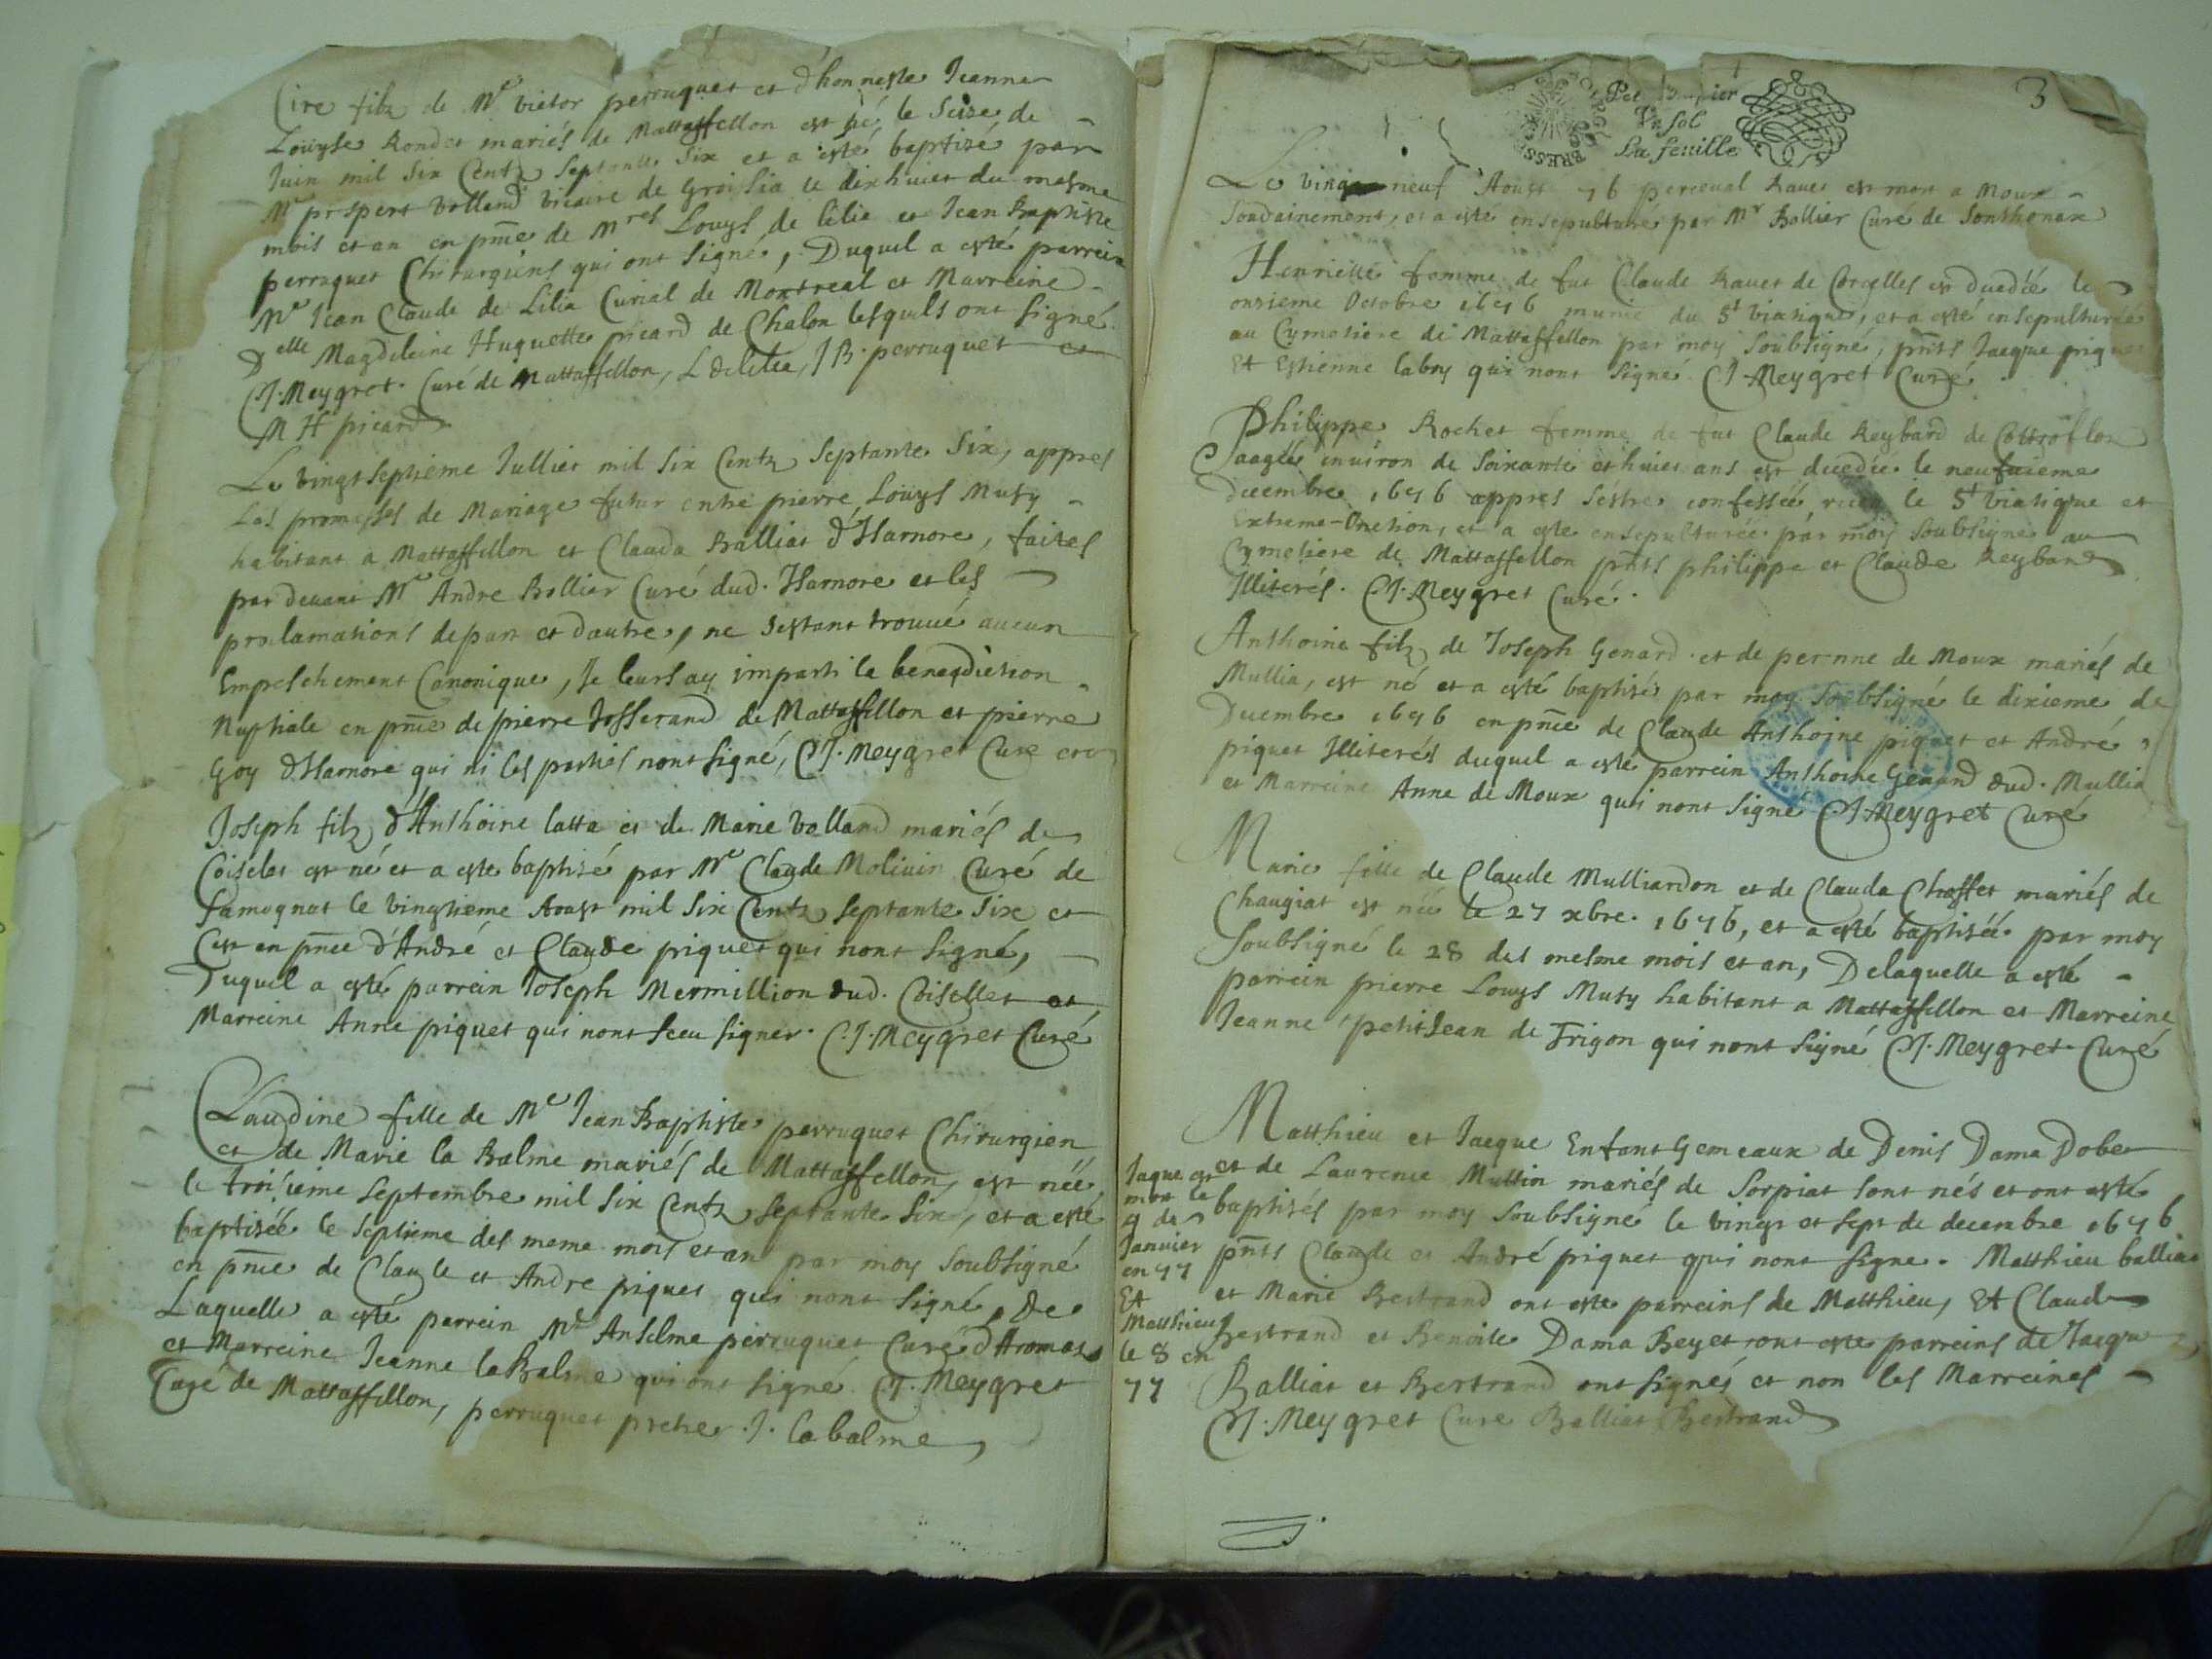 Cire filz de Mre victor perruquet et d'honneste Jeanne
Louyse Rondet mariés de Mattaffellon est né le Seize de
Juin mil Six Centz Septante Six et a esté baptizé par
Mre prospert volland vicaire de Groissia le dixhuict du mesme
mois et an en pnce de Mres Louys de lilia et Jean Baptiste
perruquet Chirurgiens qui ont Signé, Duquel a esté parrein
Mre Jean Claude de Lilia Curial de Montreal et Marreine
Delle Magdeleine Huguette picard de Chalon lesquels ont signé
CJ. Meygret Curé de Mattaffellon, L delilia, JB. perruquet et
M H picard
Le vingt septieme Jullier mil six Centz Septante Six, appres
Les promesses de Mariage futur entre pierre Louys Muty
habitant a Mattaffellon et Clauda Balliat d'Harnore, faites
par devant Mre Andre Bollier Curé dud. Harnore et les
proclamations de part et dautre, ne sestant trouvé aucun
Empeschement Canonique, Je leurs ay imparti la benediction
Nuptiale en pnce de pierre Josserand de Mattaffellon et pierre
Goy d'Harnore qui ni les parties nont signé, CJ. Meygret Cure
Joseph filz d'Anthoine latta et de Marie volland mariés de
Coiselet est né et a este baptisé par Mre Claude Molivin Curé de
Samognat le vingtieme Aoust mil Six Centz Septante Six et
Cest en pnce d'André et Claude piquet qui nont signé,
Duquel a esté parrein Joseph Mermillion dud. Coisellet et
Marreine Anne piquet qui nont sceu signer. C.J. Meygret Curé
Claudine fille de Mre Jean Baptiste perruquet Chirurgien
et de Marie la Balme mariés de Mattaffellon, est née
le troisieme Septembre mil six Centz Septante Six, et a esté
baptizée le Septieme des meme mois et an par moy Soubsigné
en pnce de Claude et Andre piquet qui nont signé, De
Laquelle a esté parrein Mre Anselme perruquet Curé d'Aromas
et Marreine Jeanne la Balme qui ont signé CJ. Meygret
Curé de Mattaffellon, perruquet pretre J. la balme
3
BRESSE
Pet papier
Un sol
La feuille
Le vingt neuf Aoust 76 perceval Ravet est mort a Moux
Soudainement, et a esté ensepulturé par Mr Bollier Curé de Sonthonax
Henriette femme de fut Claude Ravet de Corcelles est decedée le
onzieme Octobre 1676 munie du St viatique, et a esté ensepulturée
au Cymetiere de Mattaffellon par moy Soubsigné, pnts Jacque piquet
Et Estienne labry qui nont signé CJ Meygret Curé
Philippe Rochet femme de fut Claude Reybard de Cottrofllon
aagée environ de Soixante et huict ans est decedée le neufvieme
decembre 1676 appres sestre confessée, receu le St viatique et
Extreme-Onction, et a este ensepulturée par moy Soubsigné au
Cymetiere de Mattaffellon pnts philippe et Claude Reybard
Illiterés. CJ. Meygret Curé.
Anthoine filz de Joseph Genard et de pernne de Moux mariés de
Mullia, est né et a esté baptisé par moy Soubsigné le dixieme de
Decembre 1676 en pnce de Claude Anthoine piquet et André
piquet Illiterés duquel a esté parrein Anthoine Genard dud. Mullia
et Marreine Anne de Moux qui nont signé CJ. Meygret Curé
Marie fille de Claude Mulliardon et de Clauda Choffet mariés de
Chaugiat est née le 27 xbre. 1676, et a esté baptisée par moy
Soubsigné le 28 des mesme mois et an, Delaquelle a esté
parrein pierre Louys Muty habitant a Mattaffellon et Marreine
Jeanne petitJean de Frigon qui nont signé CJ. Meygret Curé
Matthieu et Jacque Enfant Gemeaux de Denis Dama Dobet
et de Laurence Mullin mariés de Sorpiat sont nés et ont esté
baptisés par moy Soubsigné le vingt et sept de decembre 1676
pnts Claude et André piquet qui nont signe. Matthieu balliat
et Marie Bertrand ont este parreins de Matthieu, Et Claude
Bertrand et Benoite Dama Beyet ont este parreins de Jacque
Balliat et Bertrand ont signés et non les Marreines
CJ. Meygret Cure Balliat Bertrand
Jaque est
mort le
9 de
Janvier
en 77
Et
Matthieu
le 8 en
77